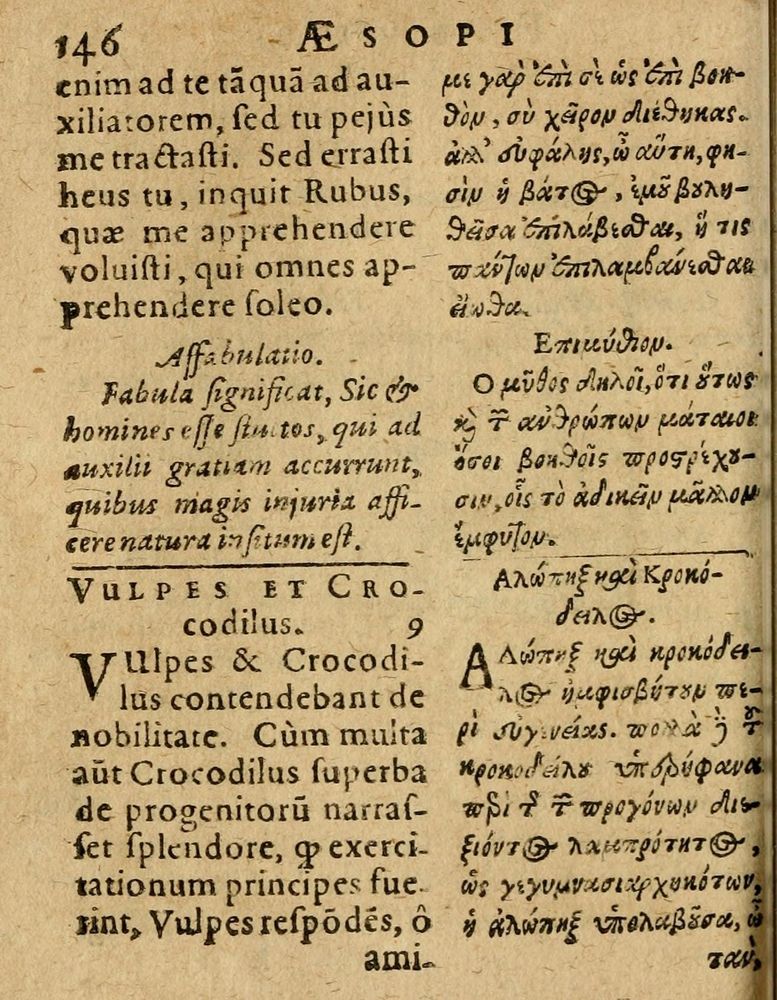 146 ÆSOPI
enim ad te tāquā ad au-
xiliatorem, ſed tu pejùs
me tractaſti. Sed erraſti
heus tu, inquit Rubus,
quæ me apprehendere
voluiſti, qui omnes ap-
prehendere ſoleo.
Affabulatio.
Fabula ſignificat, Sic &
homines eſſe ſtultos, qui ad
auxilii gratiam accurrunt,
quibus magis injuria affi-
cere natura inſitum eſt.
VULPES ET CRO-
codilus. 9
VUlpes & Crocodi-
lus contendebant de
nobilitate. Cùm multa
aūt Crocodilus ſuperba
de progenitorū narraſ-
ſet ſplendore, ꝙ exerci-
tationum principes fue
rint, Vulpes reſpōdēs, ô
ami-
με γὰρ ἐπὶ σὲ ὡς ἐπὶ βοη-
θὸν, σὺ χεῖρον διέθηκας.
ἀλλ' ἐσφάλης, ὦ αὕτη, φη-
σὶν ἡ βάτος, ἐμοῦ βουλη-
θεῖσα ἐπιλάβεσθαι, ἥ τις
πάντων ἐπιλαμβάνεσθαι
εἴωθα.
Επιμύθιον.
Ο μῦθος δηλοῖ, ὅτι οὕτως
καὶ τῶν ἀνθρώπων μάταιοι
ὅσοι βοηθοῖς προστρέχου-
σιν, οἷς τὸ ἀδικεῖν μᾶλλον
ἔμφυτον.
Αλώπηξ καὶ Κροκό-
δειλος.
ΑΛώπηξ καὶ κροκόδει-
λος ἠμφισβήτουν πε-
ρὶ εὐγενείας. πολλὰ δὲ τοῦ
κροκοδείλου ὑπερήφανα
περὶ τῆς τῶν προγόνων διε-
ξιόντος λαμπρότητος,
ὡς γεγυμνασιαρχηκότων,
ἡ ἀλώπηξ ὑπολαβοῦσα, ὦ
ταν,